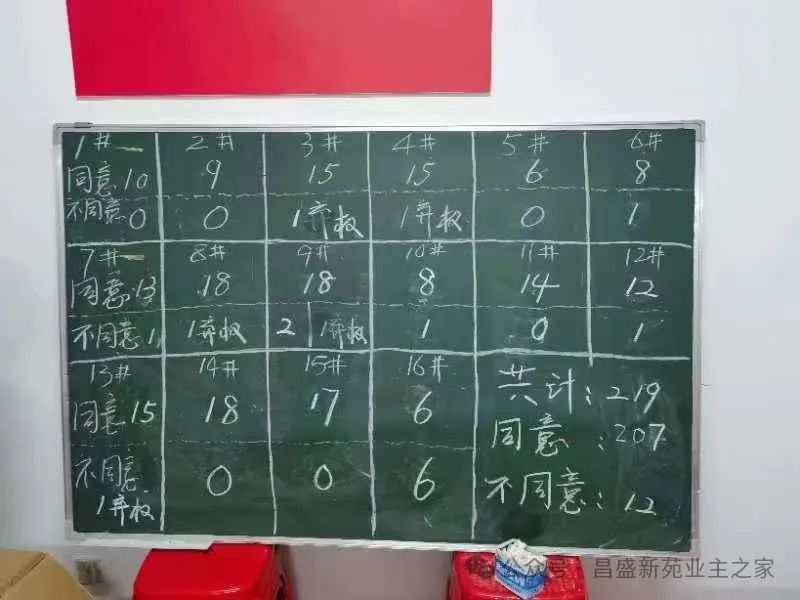 1# 2# 3# 4# 5# 6#
同意 10 9 15 15 6 8
不同意 0 0 1弃权 1弃权 0 1
7# 8# 9# 10# 11# 12#
同意 13 18 18 8 14 12
不同意 1 1弃权 2 1弃权 1 0 1
13# 14# 15# 16#
同意 15 18 17 6
不同意 0 0 6
1弃权
共计:219
同意:207
不同意:12
公众号 昌盛新苑业主之家